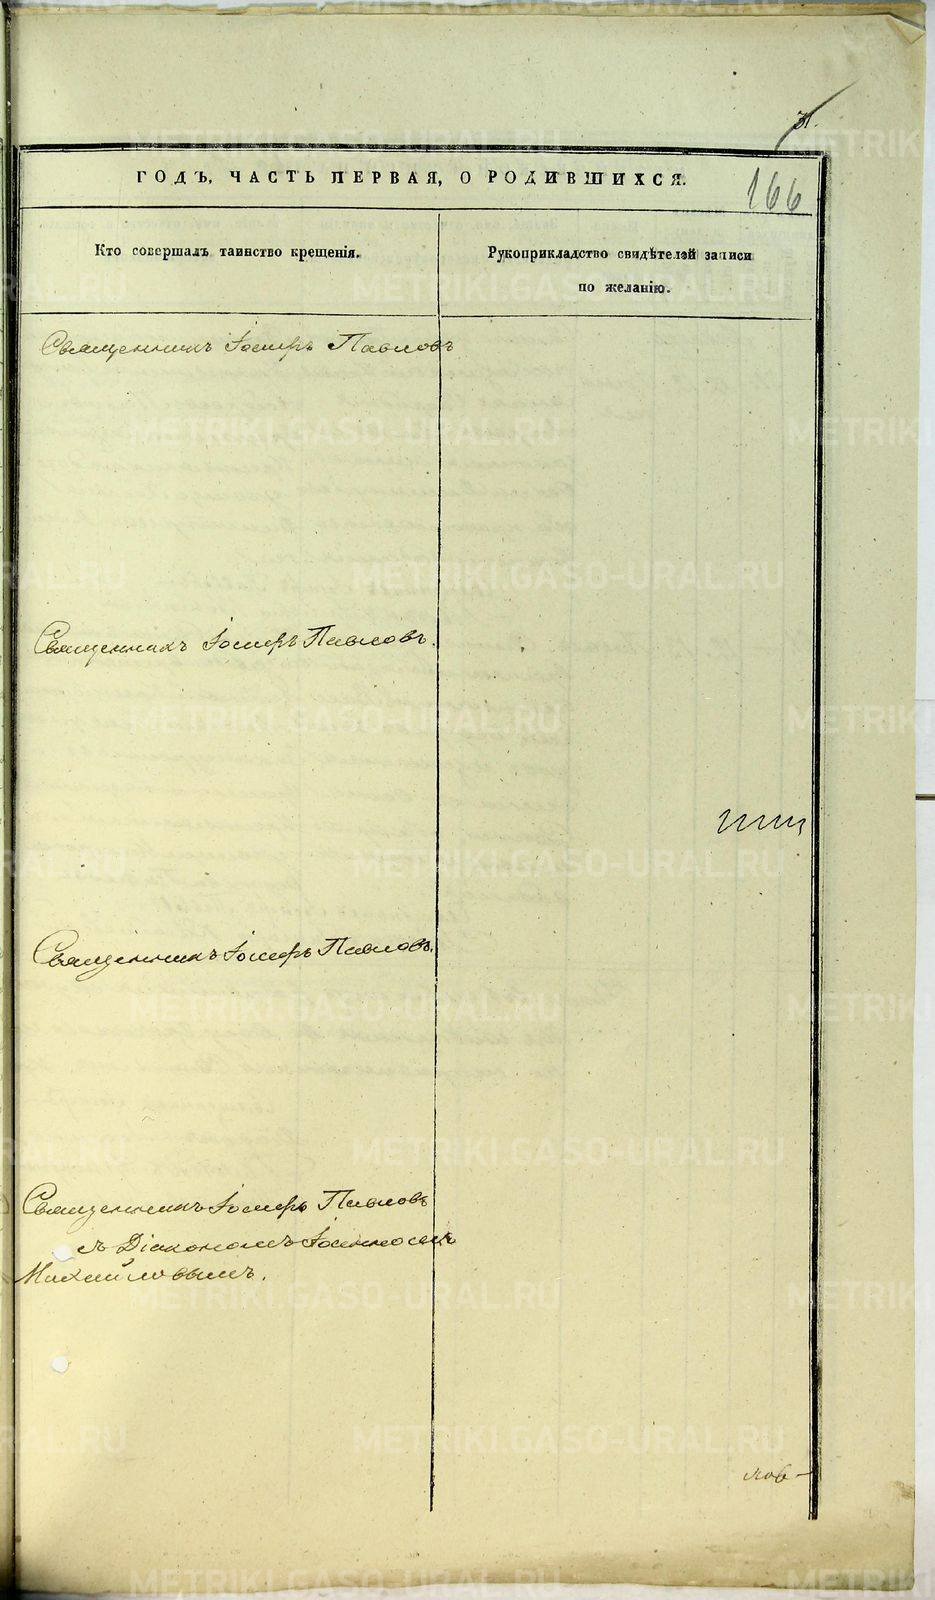 31.
ГОДЪ, ЧАСТЬ ПЕРВАЯ, О РОДИВШИХСЯ.
166
Кто совершалъ таинство крещенія.
Рукоприкладство свидѣтелей записи
по желанію.
Священникъ Іосифъ Павловъ
Священникъ Іосифъ Павловъ.
Священникъ Іосифъ Павловъ.
Священникъ Іосифъ Павловъ
съ Діакономъ Іоанномъ
Михайловымъ.
METRIKI.GASO-URAL.RU